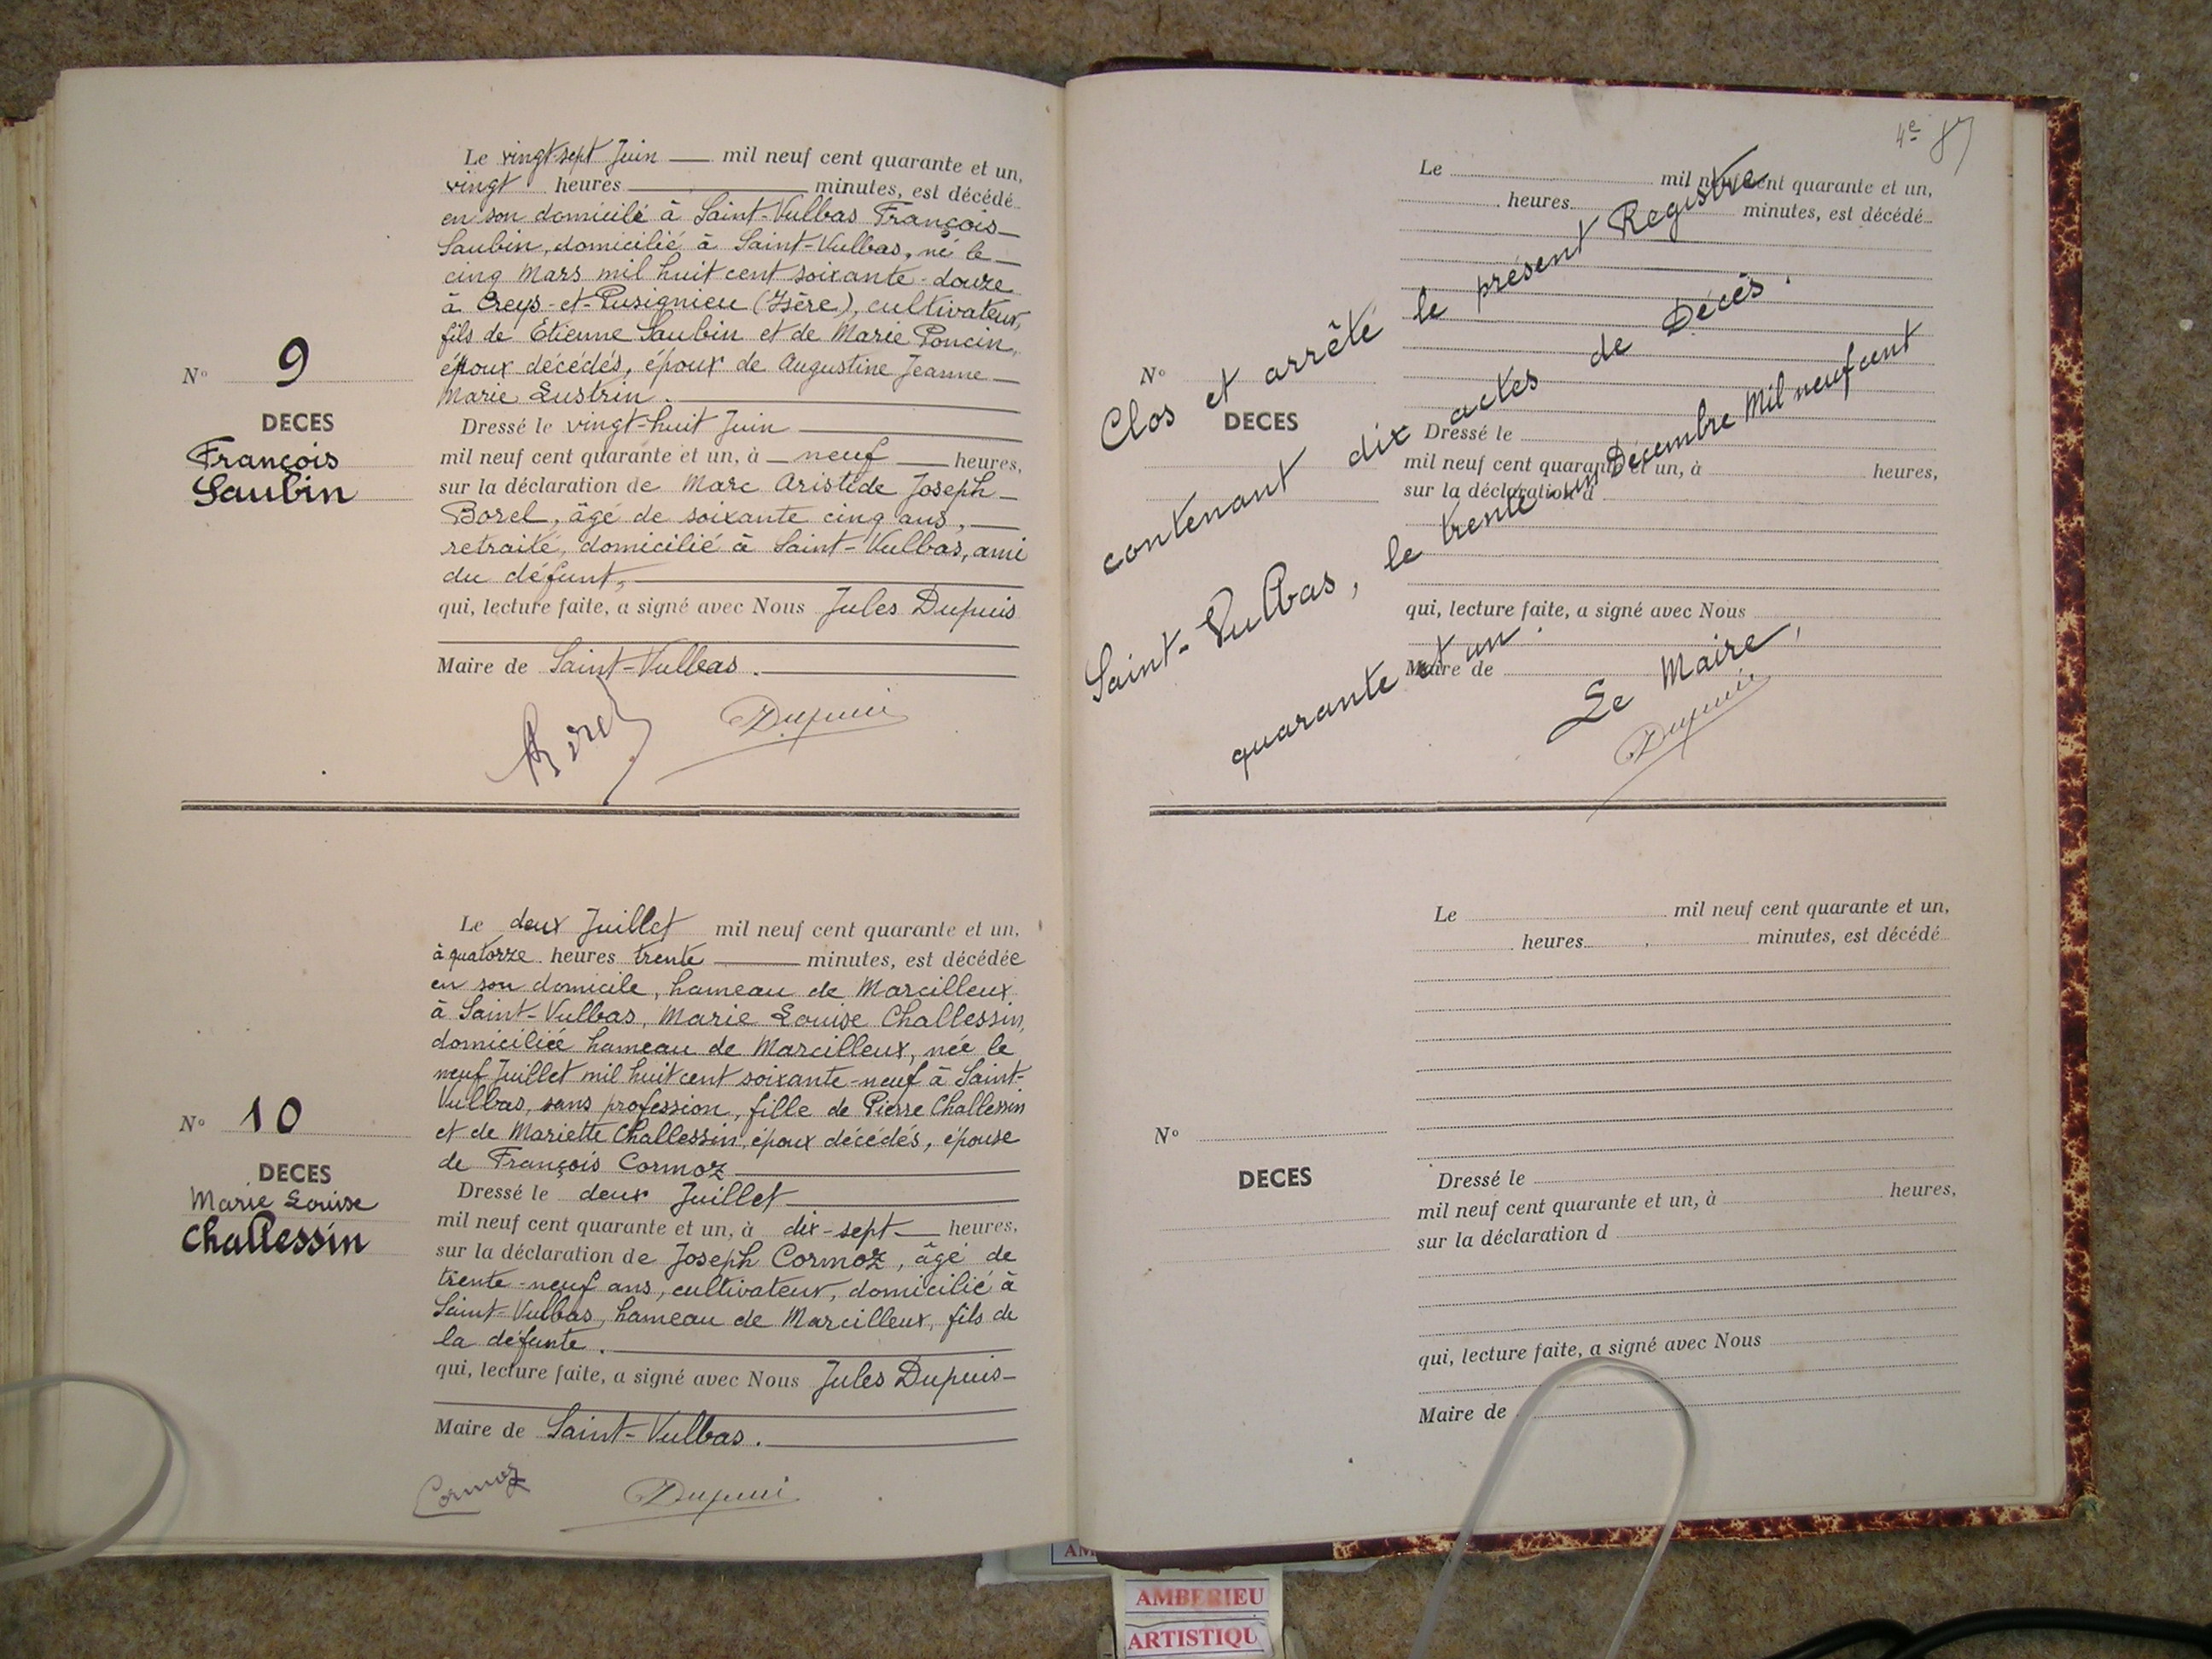 Le vingt-sept Juin mil neuf cent quarante et un,
vingt heures minutes, est décédé
en son domicile à Saint-Vulbas François
Saubin, domicilié à Saint-Vulbas, né le
cinq Mars mil huit cent soixante-douze
à Creys-et-Pusignieu (Isère), cultivateur,
fils de Etienne Saubin et de Marie Poncin,
époux décédés, époux de Augustine Jeanne
Marie Lustrin.
N° 9
DECES
François
Saubin
Dressé le vingt-huit Juin
mil neuf cent quarante et un, à neuf heures,
sur la déclaration de Marc Aristide Joseph
Borel, âgé de soixante cinq ans,
retraité, domicilié à Saint-Vulbas, ami
du défunt,
qui, lecture faite, a signé avec Nous Jules Dupuis
Maire de Saint-Vulbas.
Borel Dupuis
Le deux Juillet mil neuf cent quarante et un,
à quatorze heures trente minutes, est décédée
en son domicile, hameau de Marcilleux
à Saint-Vulbas, Marie Louise Challessin,
domiciliée hameau de Marcilleux, née le
neuf Juillet mil huit cent soixante-neuf à Saint-
Vulbas, sans profession, fille de Pierre Challessin
et de Mariette Challessin, époux décédés, épouse
de François Cormoz
N° 10
DECES
Marie Louise
Challessin
Dressé le deux Juillet
mil neuf cent quarante et un, à dix-sept heures,
sur la déclaration de Joseph Cormoz, âgé de
trente-neuf ans, cultivateur, domicilié à
Saint-Vulbas, hameau de Marcilleux, fils de
la défunte.
qui, lecture faite, a signé avec Nous Jules Dupuis
Maire de Saint-Vulbas.
Cormoz Dupuis
4e 87
Le mil neuf cent quarante et un,
heures minutes, est décédé
N°
DECES
Dressé le
mil neuf cent quarante et un, à heures,
sur la déclaration d
qui, lecture faite, a signé avec Nous
Maire de
Clos et arrêté le présent Registre
contenant dix actes de Décès.
Saint-Vulbas, le trente-un Décembre Mil neuf cent
quarante et un.
Le Maire,
Dupuis
Le mil neuf cent quarante et un,
heures minutes, est décédé
N°
DECES
Dressé le
mil neuf cent quarante et un, à heures,
sur la déclaration d
qui, lecture faite, a signé avec Nous
Maire de
AMBERIEU
ARTISTIQU